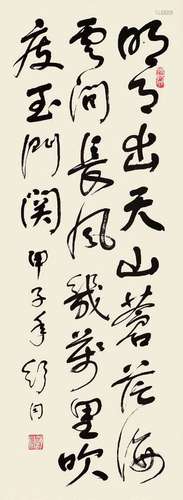 明月出天山蒼茫海
雲間長風幾萬里吹
度玉門關
甲子年舒同